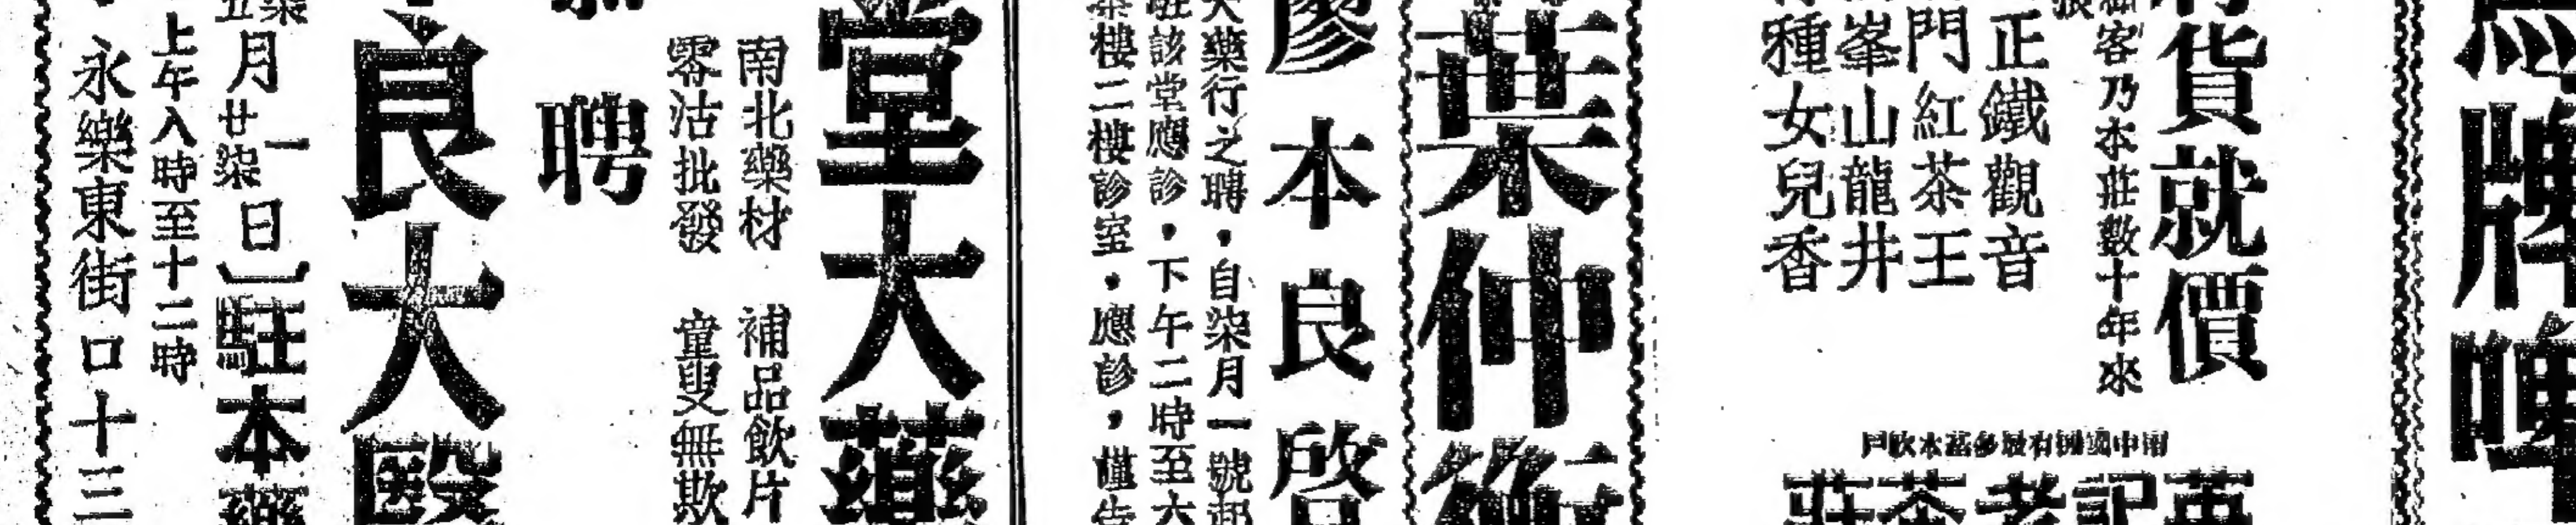 牌啤
貨就價
客乃本莊數十年來
正鐵觀音
門紅茶王
峯山龍井
種女兒香
英記老茶莊
葉仲衡
廖本良啓
大藥行之聘，自柒月一號起
駐該堂應診，下午二時至六
茶樓二樓診室，應診，謹告
堂大藥
南北藥材 補品飲片
零沽批發 童叟無欺
聘
良大醫
月廿一柒日〕駐本藥
上午八時至十二時
永樂東街口十三